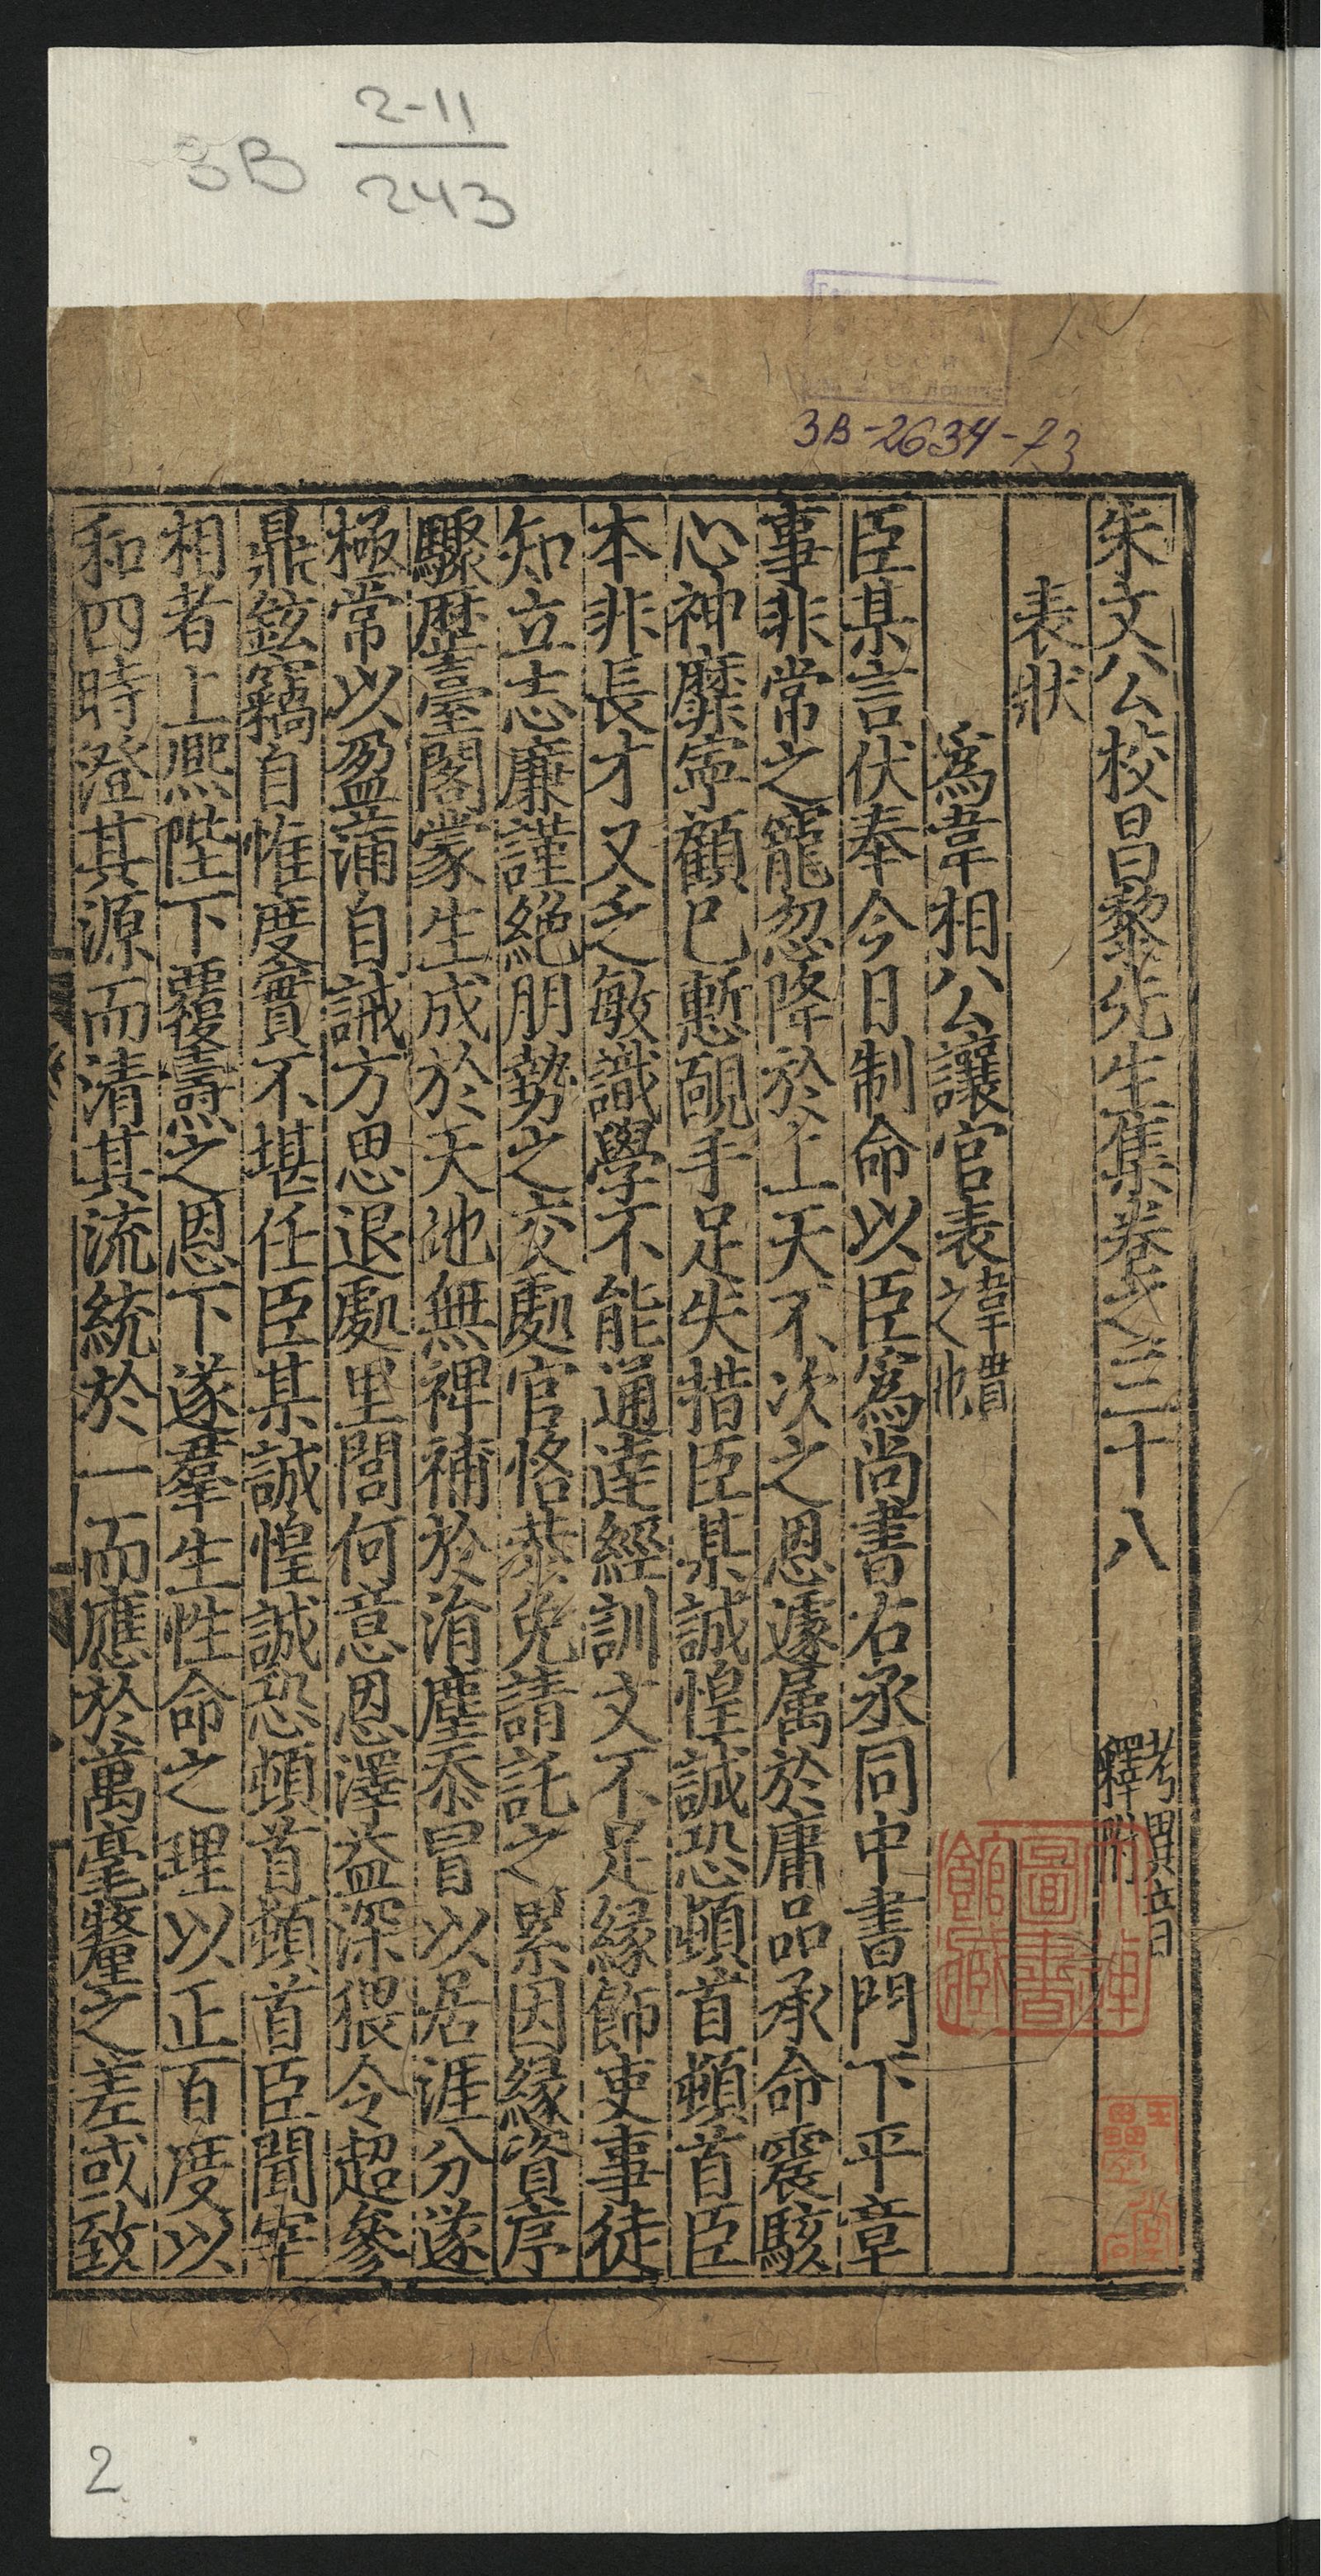 3B 2-11
243
3B-2634-73
朱文公校昌黎先生集卷之三十八
考異音
釋附
表狀
爲韋相公讓官表
韋貫
之也
臣某言伏奉今日制命以臣爲尚書右丞同中書門下平章
事非常之寵忽降於上天不次之恩遽属於庸品承命震駭
心神靡寧顧已慙靦手足失措臣某誠惶誠恐頓首頓首臣
本非長才又乏敏識學不能通達經訓文不足縁飾吏事徒
知立志廉謹絶朋勢之交處官恪恭免請託之累因縁資序
驟歷臺閣蒙生成於天地無裨補於涓塵忝冒以居涯分遂
極常以盈蒲自誡方思退處里閭何意恩澤益深猥令超參
鼎鉉竊自惟度實不堪任臣某誠惶誠恐頓首頓首臣聞宰
相者上熈陛下覆燾之恩下遂羣生性命之理以正百度以
和四時澄其源而清其流統於一而應於萬毫釐之差或致
圖書
館藏
2